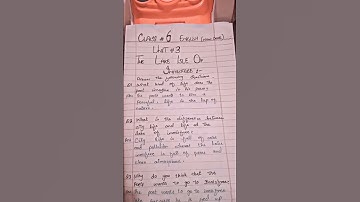 CLASS # 6 ENGLISH
UNIT # 3
THE LAKE ISLE OF
INNISFREE :-
Answer the following Questions
Q1 What kind of life does the
poet imagine in his poem?
Ans The poet wants to live a
peaceful life in the lap of
nature.
Q2 What is the difference between
city life and life at the
lake of Innisfree?
Ans City life is full of noise
and pollution where the lake
Innisfree is full of peace and
clean atmosphere.
Q3 Why do you think that the
poet wants to go to Innisfree?
Ans the poet wants to go to Innisfree